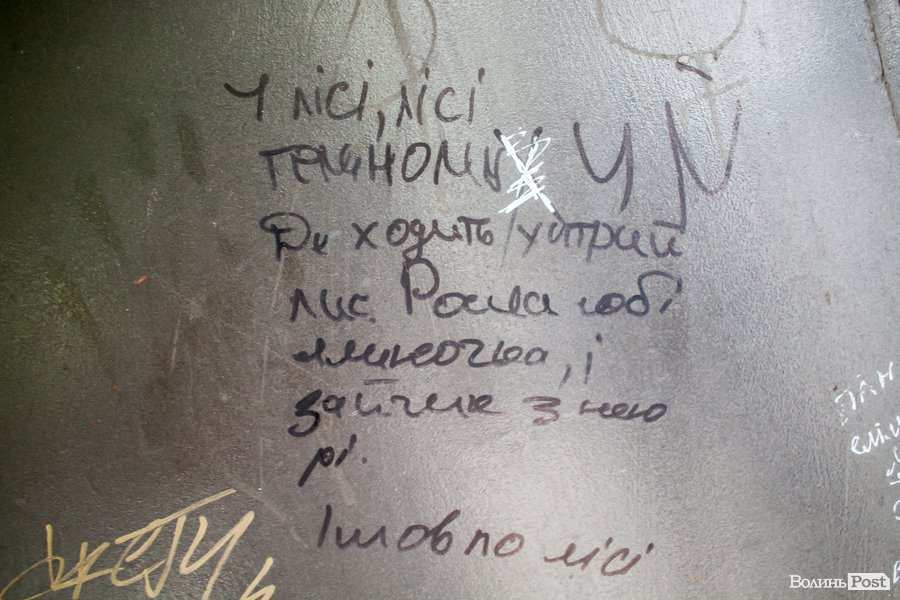 У лісі, лісі
темному
Де ходить хитрий
лис. Росла собі
ялиночка, і
зайчик з нею
ріс.
Ішов по лісі
ПАН
Волинь Post